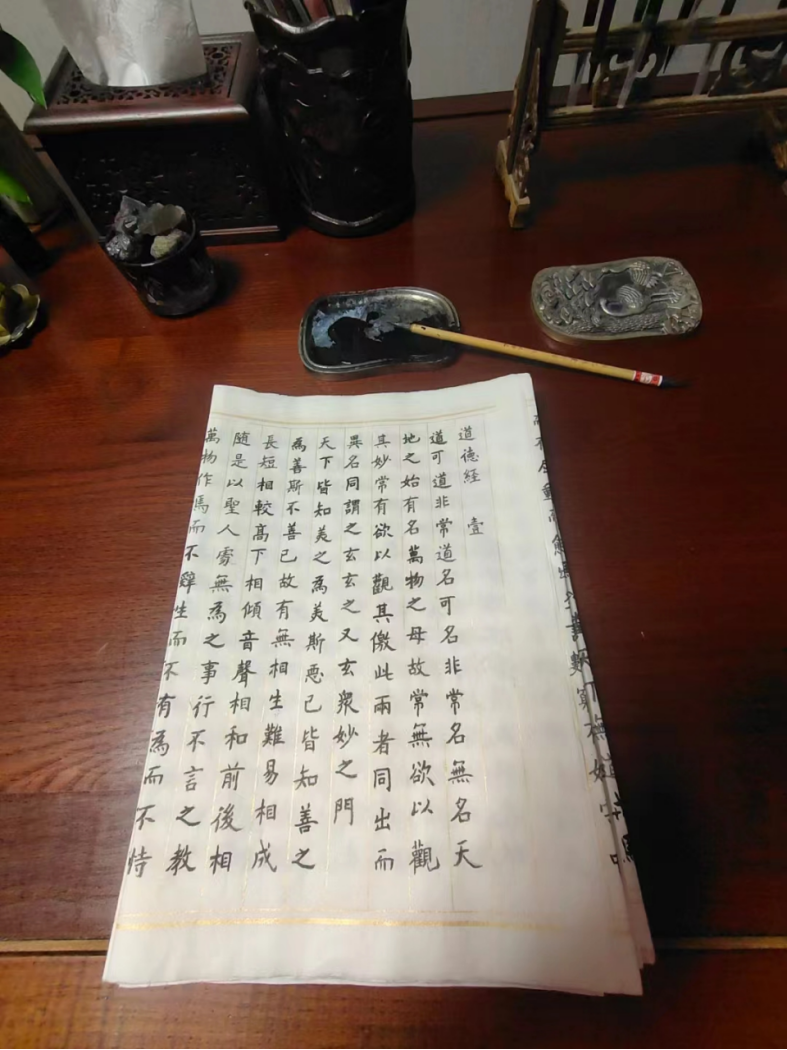 道德經 壹
道可道非常道名可名非常名無名天
地之始有名萬物之母故常無欲以觀
其妙常有欲以觀其儌此兩者同出而
異名同謂之玄玄之又玄衆妙之門
天下皆知美之為美斯惡已皆知善之
為善斯不善已故有無相生難易相成
長短相較高下相傾音聲相和前後相
隨是以聖人處無為之事行不言之教
萬物作焉而不辭生而不有為而不恃